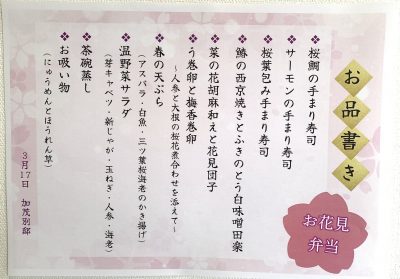 お品書き
お花見
弁当
❖桜鯛の手まり寿司
❖サーモンの手まり寿司
❖桜葉包み手まり寿司
❖鰆の西京焼きとふきのとう白味噌田楽
❖菜の花胡麻和えと花見団子
❖う巻卵と梅香巻卵
～人参と大根の桜花煮合わせを添えて～
❖春の天ぷら
(アスパラ・白魚・三ツ葉桜海老のかき揚げ)
❖温野菜サラダ
(芽キャベツ・新じゃが・玉ねぎ・人参・海老)
❖茶碗蒸し
❖お吸い物
(にゅうめんとほうれん草)
3月17日 加茂別邸